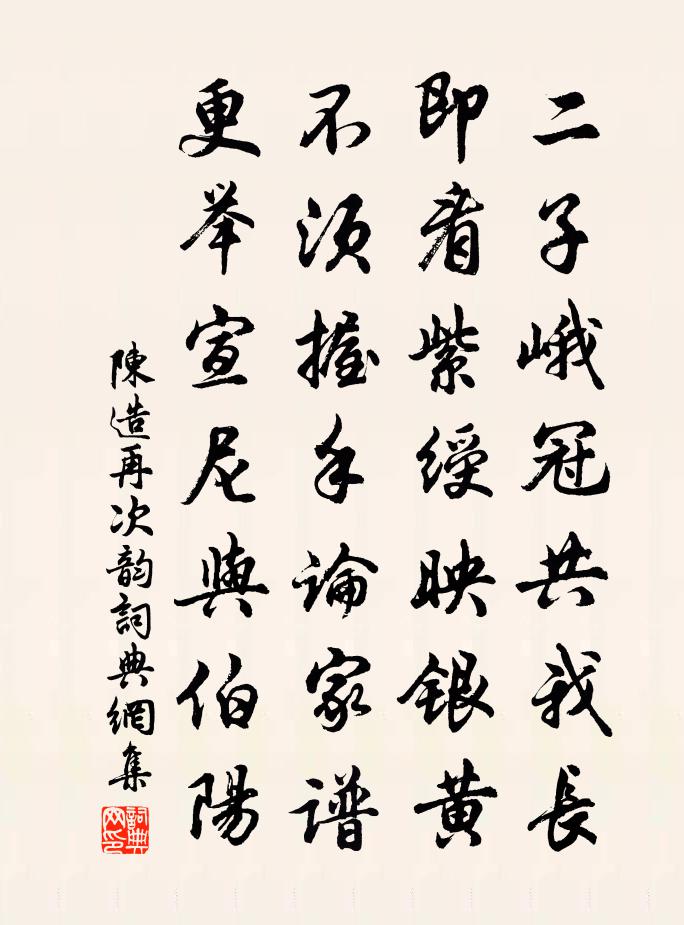 二子峨冠共我長
即看紫綬映银黄
不须握手論家谱
更举宣尼與伯陽
陳造再次韵詞典網集
詞典網印